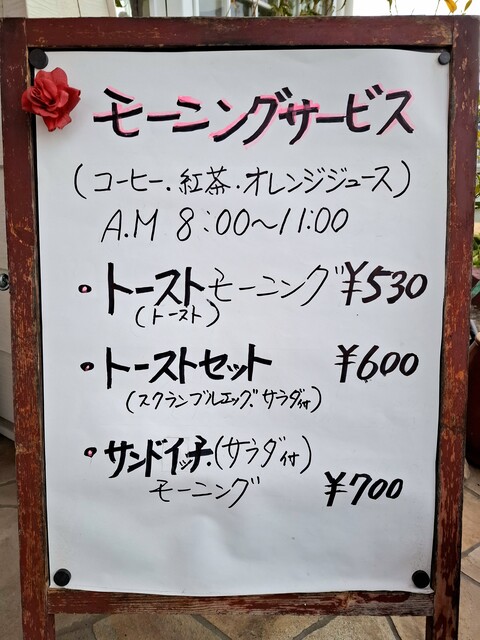 モーニングサービス
(コーヒー.紅茶.オレンジジュース)
A.M 8:00〜11:00
・トーストモーニング ¥530
(トースト)
・トーストセット ¥600
(スクランブルエッグ.サラダ付)
・サンドイッチ.(サラダ付)
モーニング ¥700